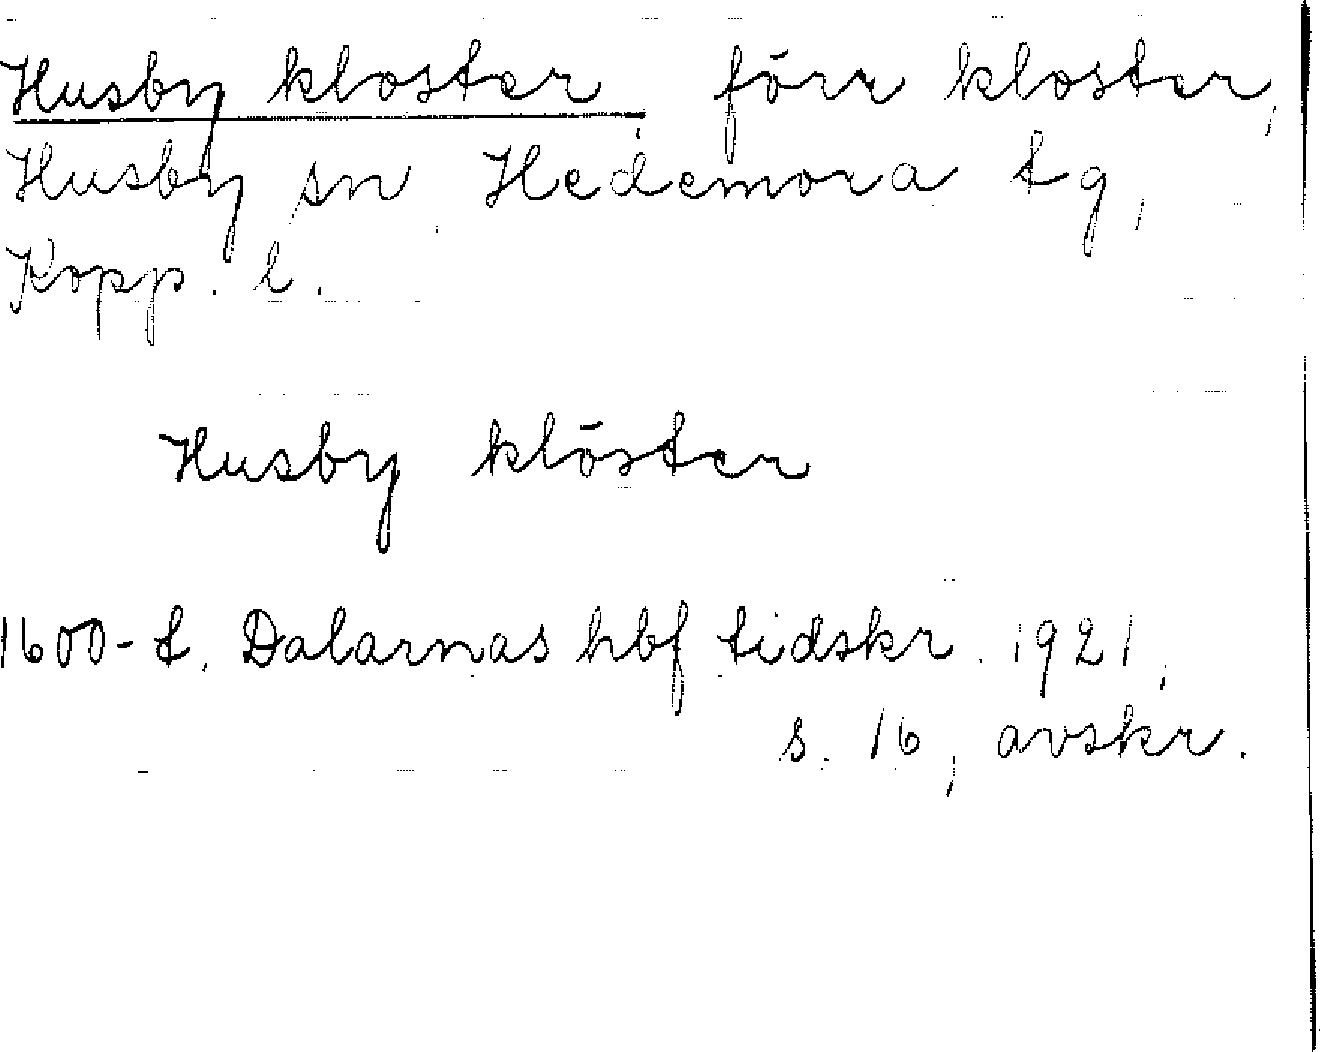 Husby kloster förr kloster,
Husby sn, Hedemora tg,
Kopp. l.
Husby klöster
1600-t. Dalarnas hbf tidskr. 1921,
s. 16, avskr.